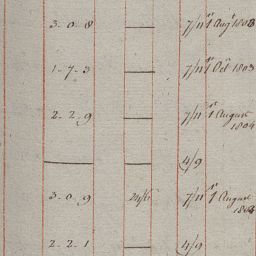 3 - 0 - 8 — 7/11 1 Augt 1808
1 - 7 - 3 — 7/11 1 Oct 1803
2 - 2 - 9 — 7/11 1 August
1804
— — 4/9
3 - 0 - 9 7/11 1 August
1804
2 - 2 - 1 — 4/9